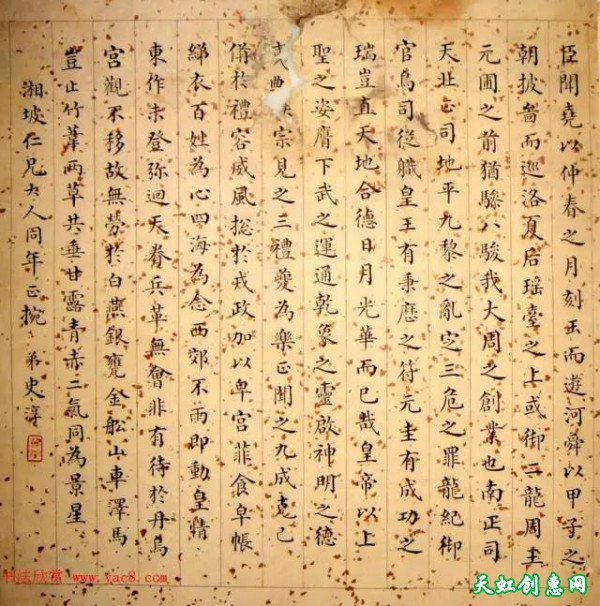 臣聞堯以仲春之月刻玉而遊河舜以甲子之
朝披啚而巡洛夏后瑤臺之上或御二龍周王
元圃之前猶驂八駿我大周之創業也南正司
天北正司地平九黎之亂定三危之罪龍紀御
官鳥司從職皇王有秉歷之符元圭有成功之
瑞豈直天地合德日月光華而已哉皇帝以上
聖之姿膺下武之運通乾象之靈啟神明之德
宗見之三禮夔為樂正聞之九成克己
俻於禮容威風揔於戎政加以卑宮菲食皁帳
綈衣百姓為心四海為念西郊不雨即動皇情
東作未登弥迴天眷兵革無會非有待於丹烏
宮觀不移故無勞於白燕銀甕金舩山車澤馬
豈止竹葦兩草共垂甘露青赤二氣同為景星
湘坡仁兄大人同年正捥 弟史淳
书法欣赏 www.yac8.com
天虹创惠网